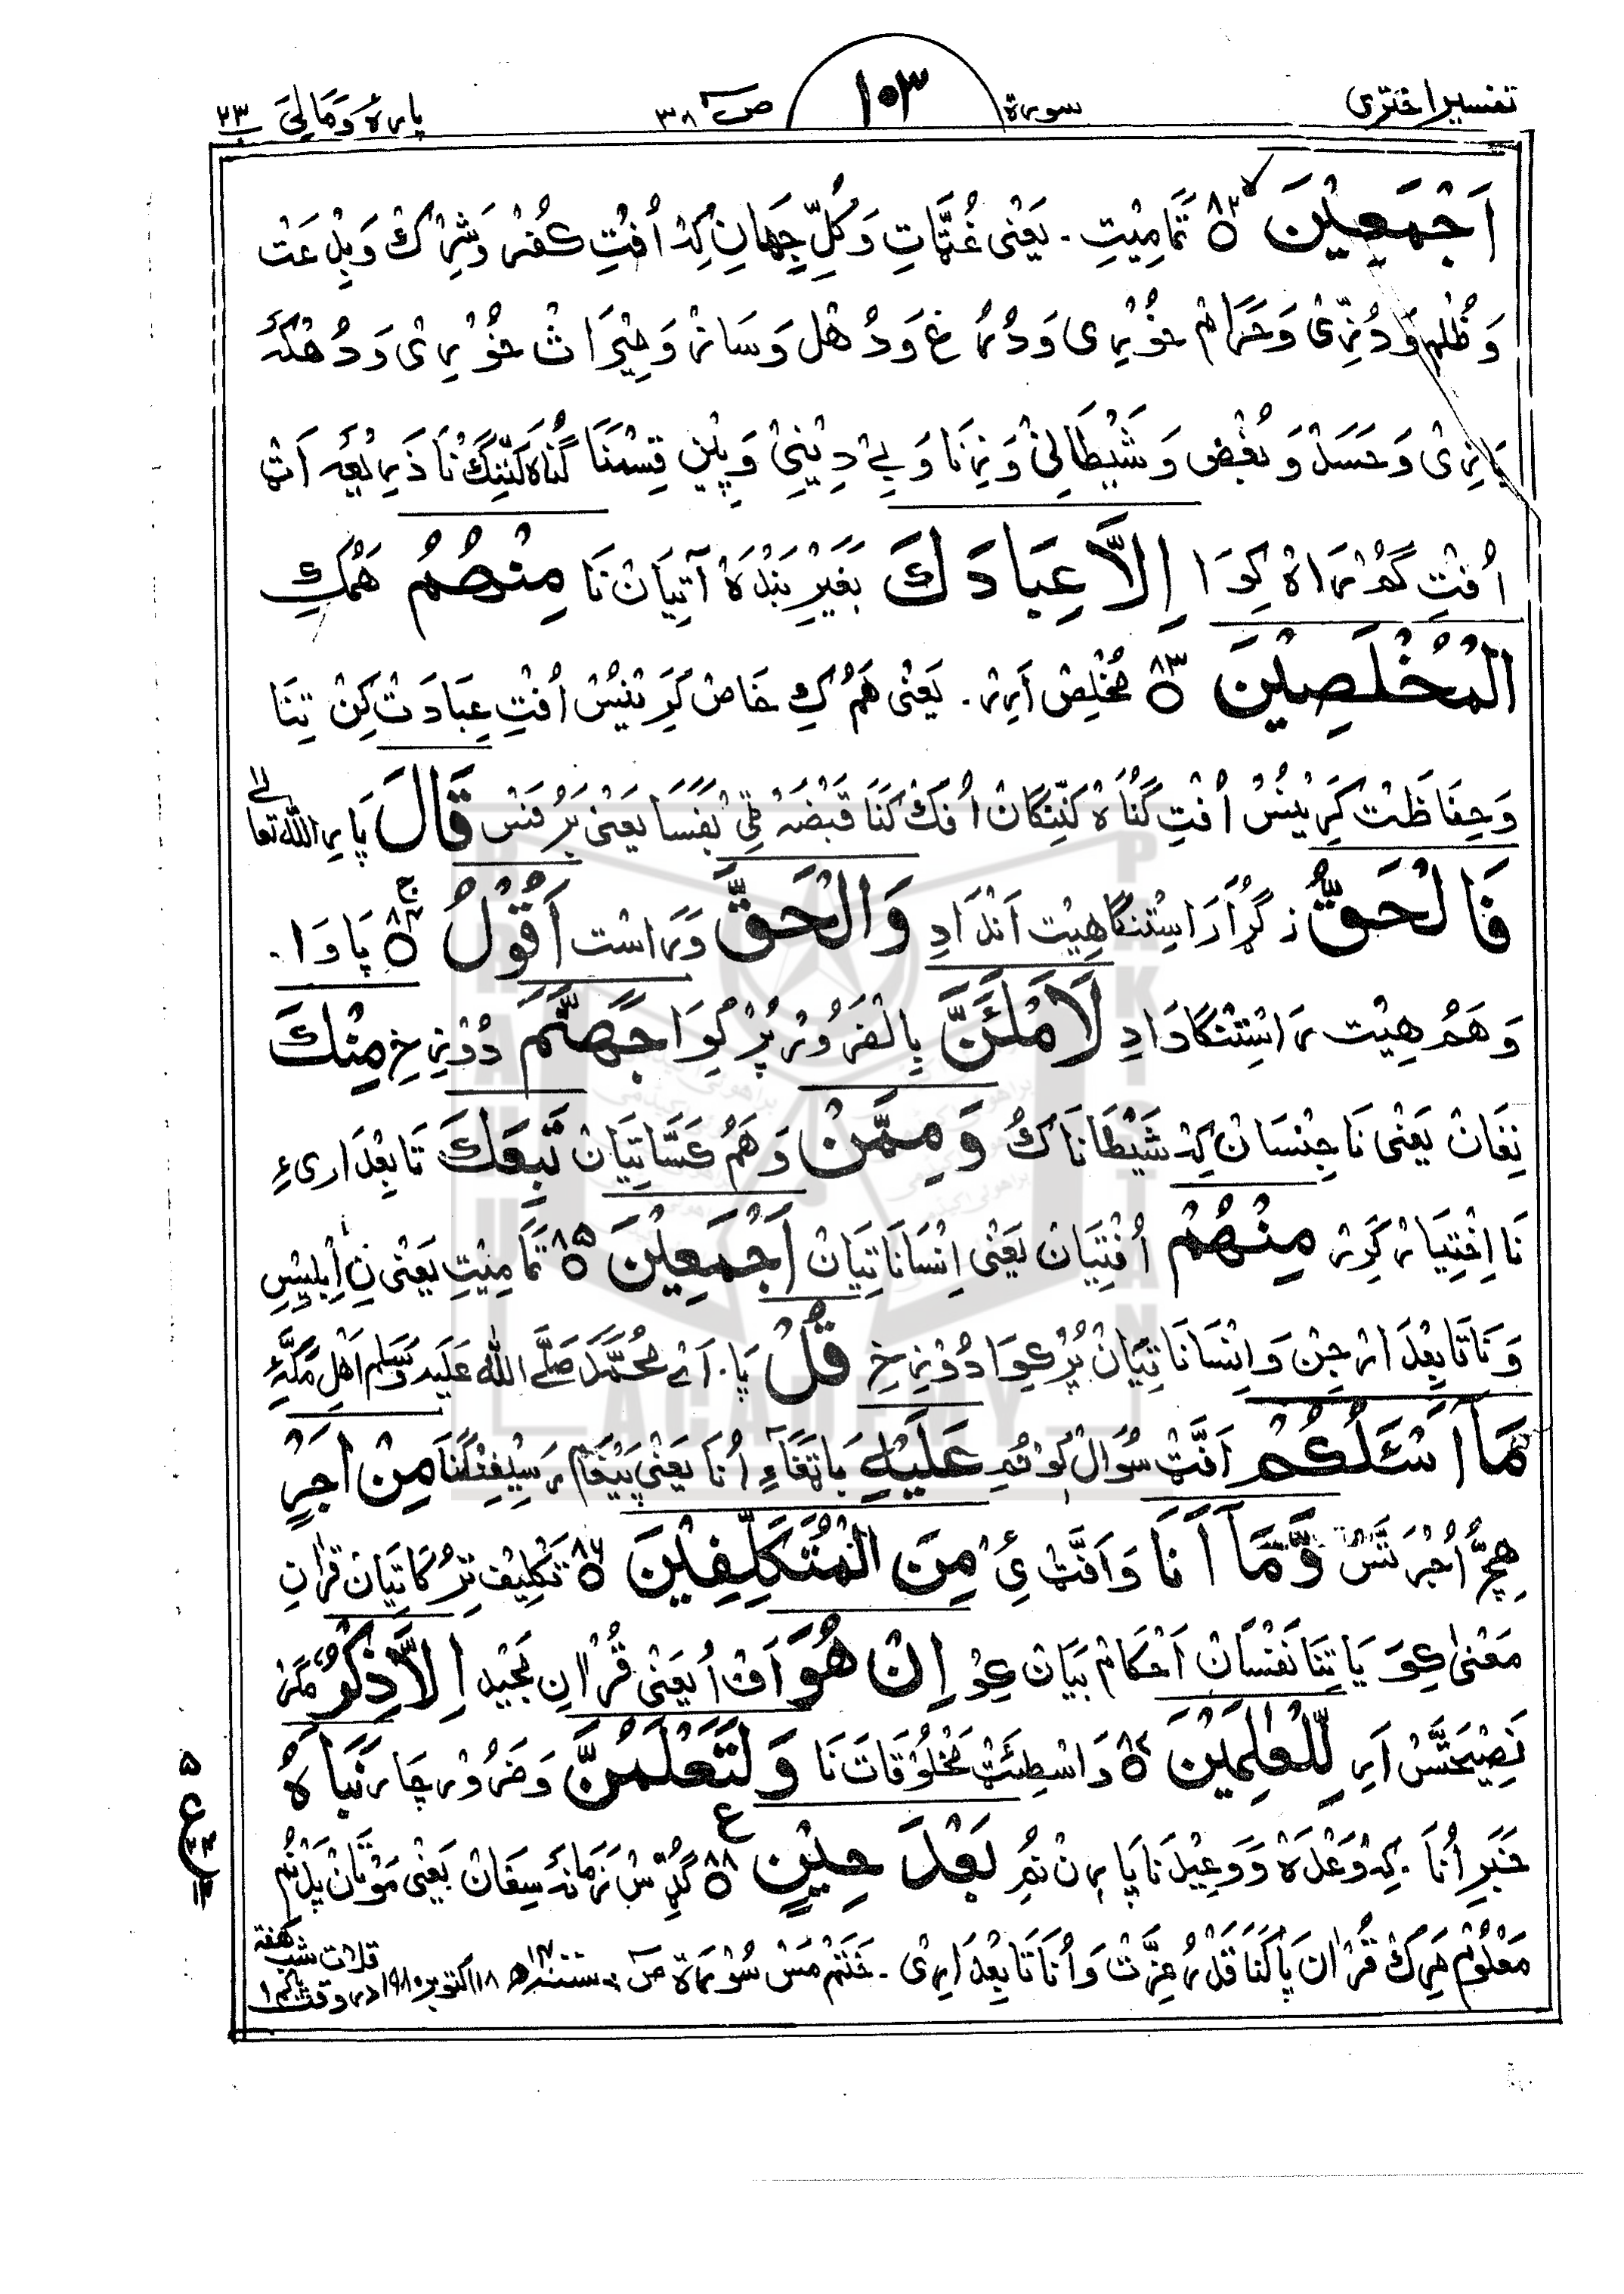 تفسیر اختری سورة ص ۳۸ ۱۰۳ پارۀ وَمَالِیَ ۲۳
اَجْمَعِيْنَ ۸۲ تَمَامِیْتِ ۔ یَعْنِی غُتَّاتِ وَ کُلِّ جِہَانِ کِہ اُفْتِ کُفْر وَشِرْک وَ بِدْعَتْ
وَظُلْم وَدُزِّیْ وَحَرَام خُوْرِی وَدُرُغ وَدُهْل وَسَاز وَخِیْرَاتْ خُوْرِی وَدُهْکَہ
بَازِیْ وَحَسَد وَبُغْض وَشَیْطَانِیْ وَزِنَا وَبِے دِیْنِیْ وَپِیْن قِسْمَنَا گُنَاہ کَنِّنِگ نَا ذَرِیْعَہ اَٹ
اُفْتِ گُمْرَاہ کِوَا اِلَّا عِبَادَكَ بَغَیْرِ بَنْدَہ آتِیَان نَا مِنْهُمُ هَمْکِ
الْمُخْلَصِيْنَ ۸۳ مُخْلِص اَرِر ۔ یَعْنِی هَمْ کِ خَاص کَرِیْنُسْ اُفْتِ عِبَادَت کِنْ تِنَا
وَحِفَاظَت کَرِیْنُسْ اُفْتِ گُنَاہ کَنِّنِگَان اُفْک کَنَا قَبْضَہ ٹِی بَفَسَا یَعْنِی بَرُفَنَسْ قَالَ پَارِ اللّٰہ تعالیٰ
فَالْحَقُّ زِ گُڑَا رَاسْتِنْگَا هِیْت اَنْدَادِ وَالْحَقَّ وَ رَاسْت اَقُوْلُ ۸۴ پَاوَا ۔
وَهَمْ هِیْت رَاسْتِنْگَا وَادِ لَاَمْلَئَنَّ بِالْضَرُوْر پُرْ کِوَا جَهَنَّمَ دُوْزِخِ مِنْكَ
نِفَان یَعْنِی نَا جِنْسَان کِہ شَیْطَانَاکُ وَمِمَّنْ وَهَمْ کَسَاتِیَان تَبِعَكَ تَابِعْدَارِیءِ
نَا اِخْتِیَار کَرِر مِنْهُمْ اُفْتِیَان یَعْنِی اِنْسَانَاتِیَان اَجْمَعِيْنَ ۸۵ تَمَامِیْتِ یَعْنِی نِ اِبْلِیْسِ
وَنَا تَابِعْدَار جِن وَاِنْسَانَاتِیَان پُرْ کِوَا دُوْزِخِ قُلْ پَا ۔ اَے مُحَمَّدْ صَلَّے اللّٰہ عَلَیْہ وَسَلَّم اَهْلِ مَکَّہءِ
مَآ اَسْئَلُكُمْ اَفَّٹ سُوَال کَوْ نُم عَلَيْهِ بَاتَغَاءِ اُنَا یَعْنِی پَیْغَام رَسِیْفِنْگَنَا مِنْ اَجْرٍ
هِچّ اُجْرَتَسْ وَّمَآ اَنَا وَاَفَّٹ ئِ مِنَ الْمُتَكَلِّفِيْنَ ۸۶ تَکْلِیْف تِرُکَاتِیَان قُرْاٰنِ
مَعْنٰی کِوَ یَا تِنَا نَفْسَان اَحْکَام بَیَان کِوْ اِنْ هُوَ اَف اُ یَعْنِی قُرْاٰنِ مَجِیْد اِلَّا ذِكْرٌ مَگَر
نَصِیْحَتَسْ اَرِ لِّلْعٰلَمِيْنَ ۸۷ وَاسْطِئَٹ مَخْلُوْقَات نَا وَلَتَعْلَمُنَّ وَضَرُوْر چَار نَبَاَهٗ
خَبَرِ اُنَا ۔ کِہ وَعْدَہ وَ وَعِیْد نَا پَارِن نُم بَعْدَ حِيْنٍ ۸۸ گُڈّ سْ زَمَانَہ سِفَان یَعْنِی مَوْتَان پَدْ نُم
مَعْلُوْم مَرِک قُرْاٰن پَاکَنَا قَدْر عِزَّت وَاُنَا تَابِعْدَارِی ۔ خَتَم مَسْ سُوْرَة ص ۱۸ اکتوبر ۱۹۸۰ قلات شب هفته
ع ۵